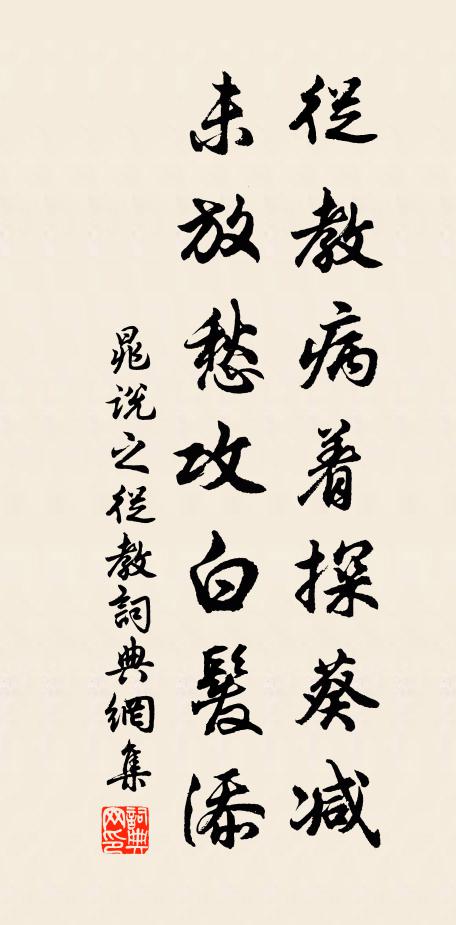 從教病着探葵減
未放愁攻白髮添
晁說之從教詞典網集
詞典網印